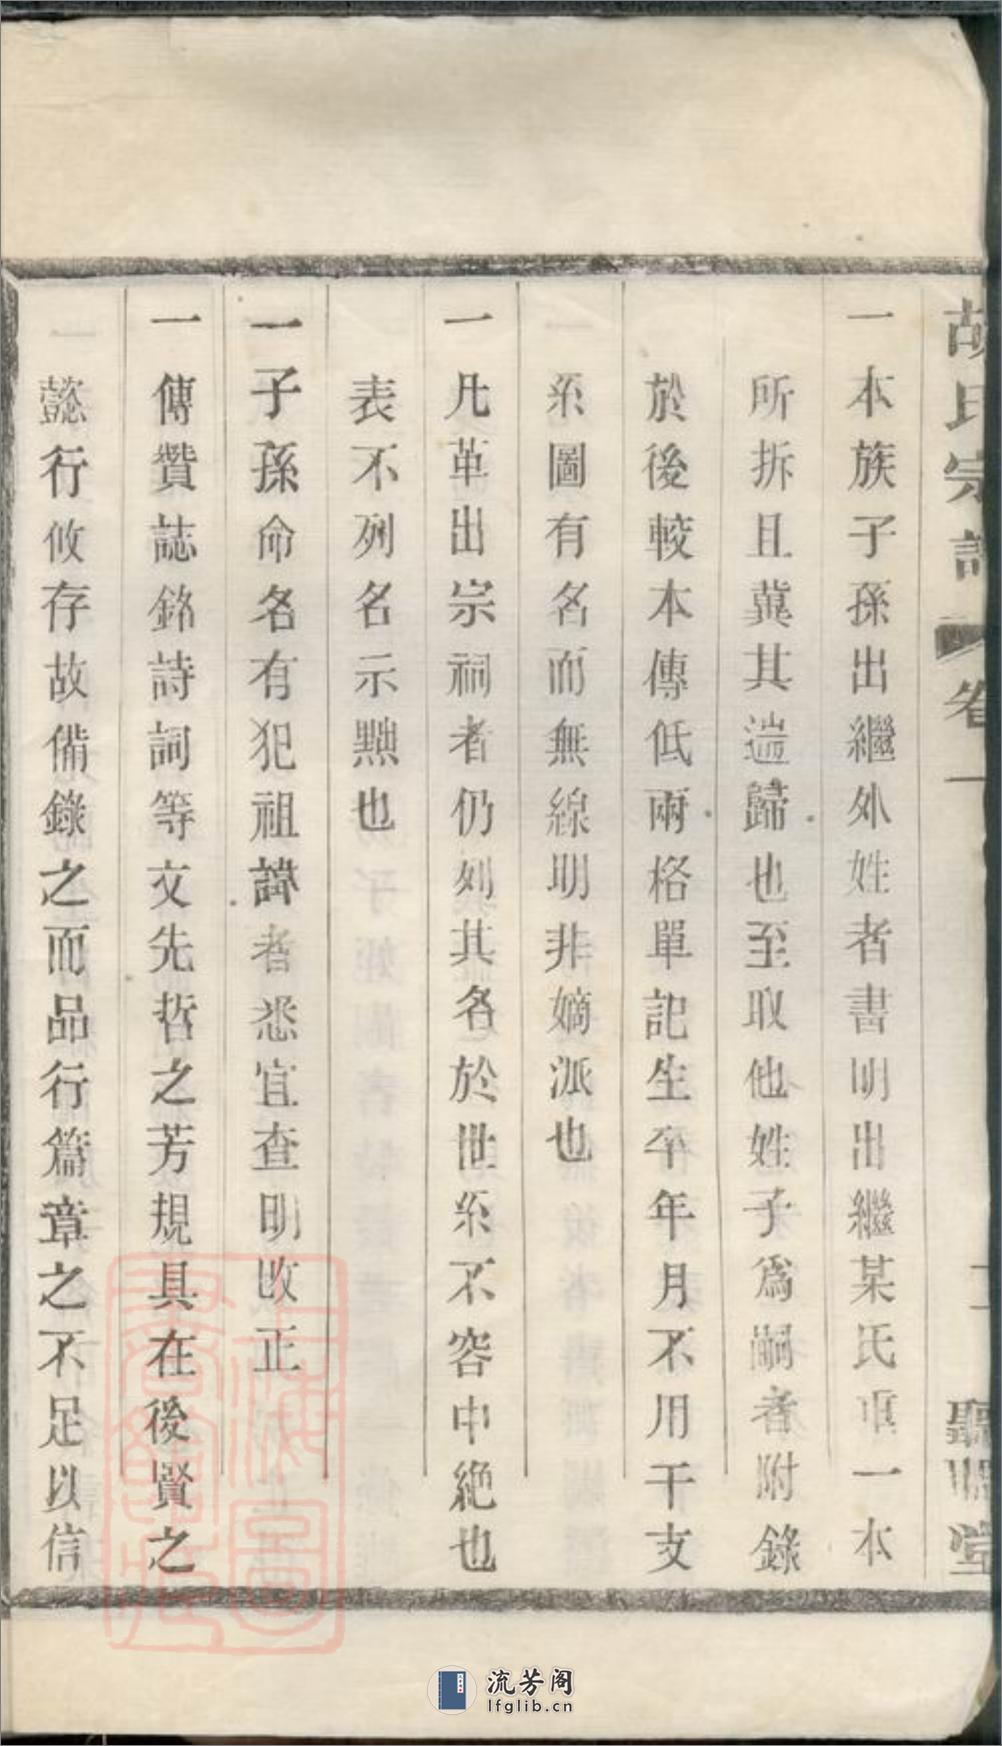 胡氏宗譜 卷一 二 聽彝堂
一本族子孫出繼外姓者書明出繼某氏重一本
所拆且冀其遄歸也至取他姓子爲嗣者附錄
於後較本傳低兩格單記生卒年月不用干支
系圖有名而無線明非嫡派也
一凡革出宗祠者仍列其名於世系不容中絶也
表不列名示黜也
一子孫命名有犯祖諱者悉宜查明改正
一傳贊誌銘詩詞等文先哲之芳規具在後賢之
懿行攸存故備錄之而品行篇章之不足以信
流芳阁
lfglib.cn